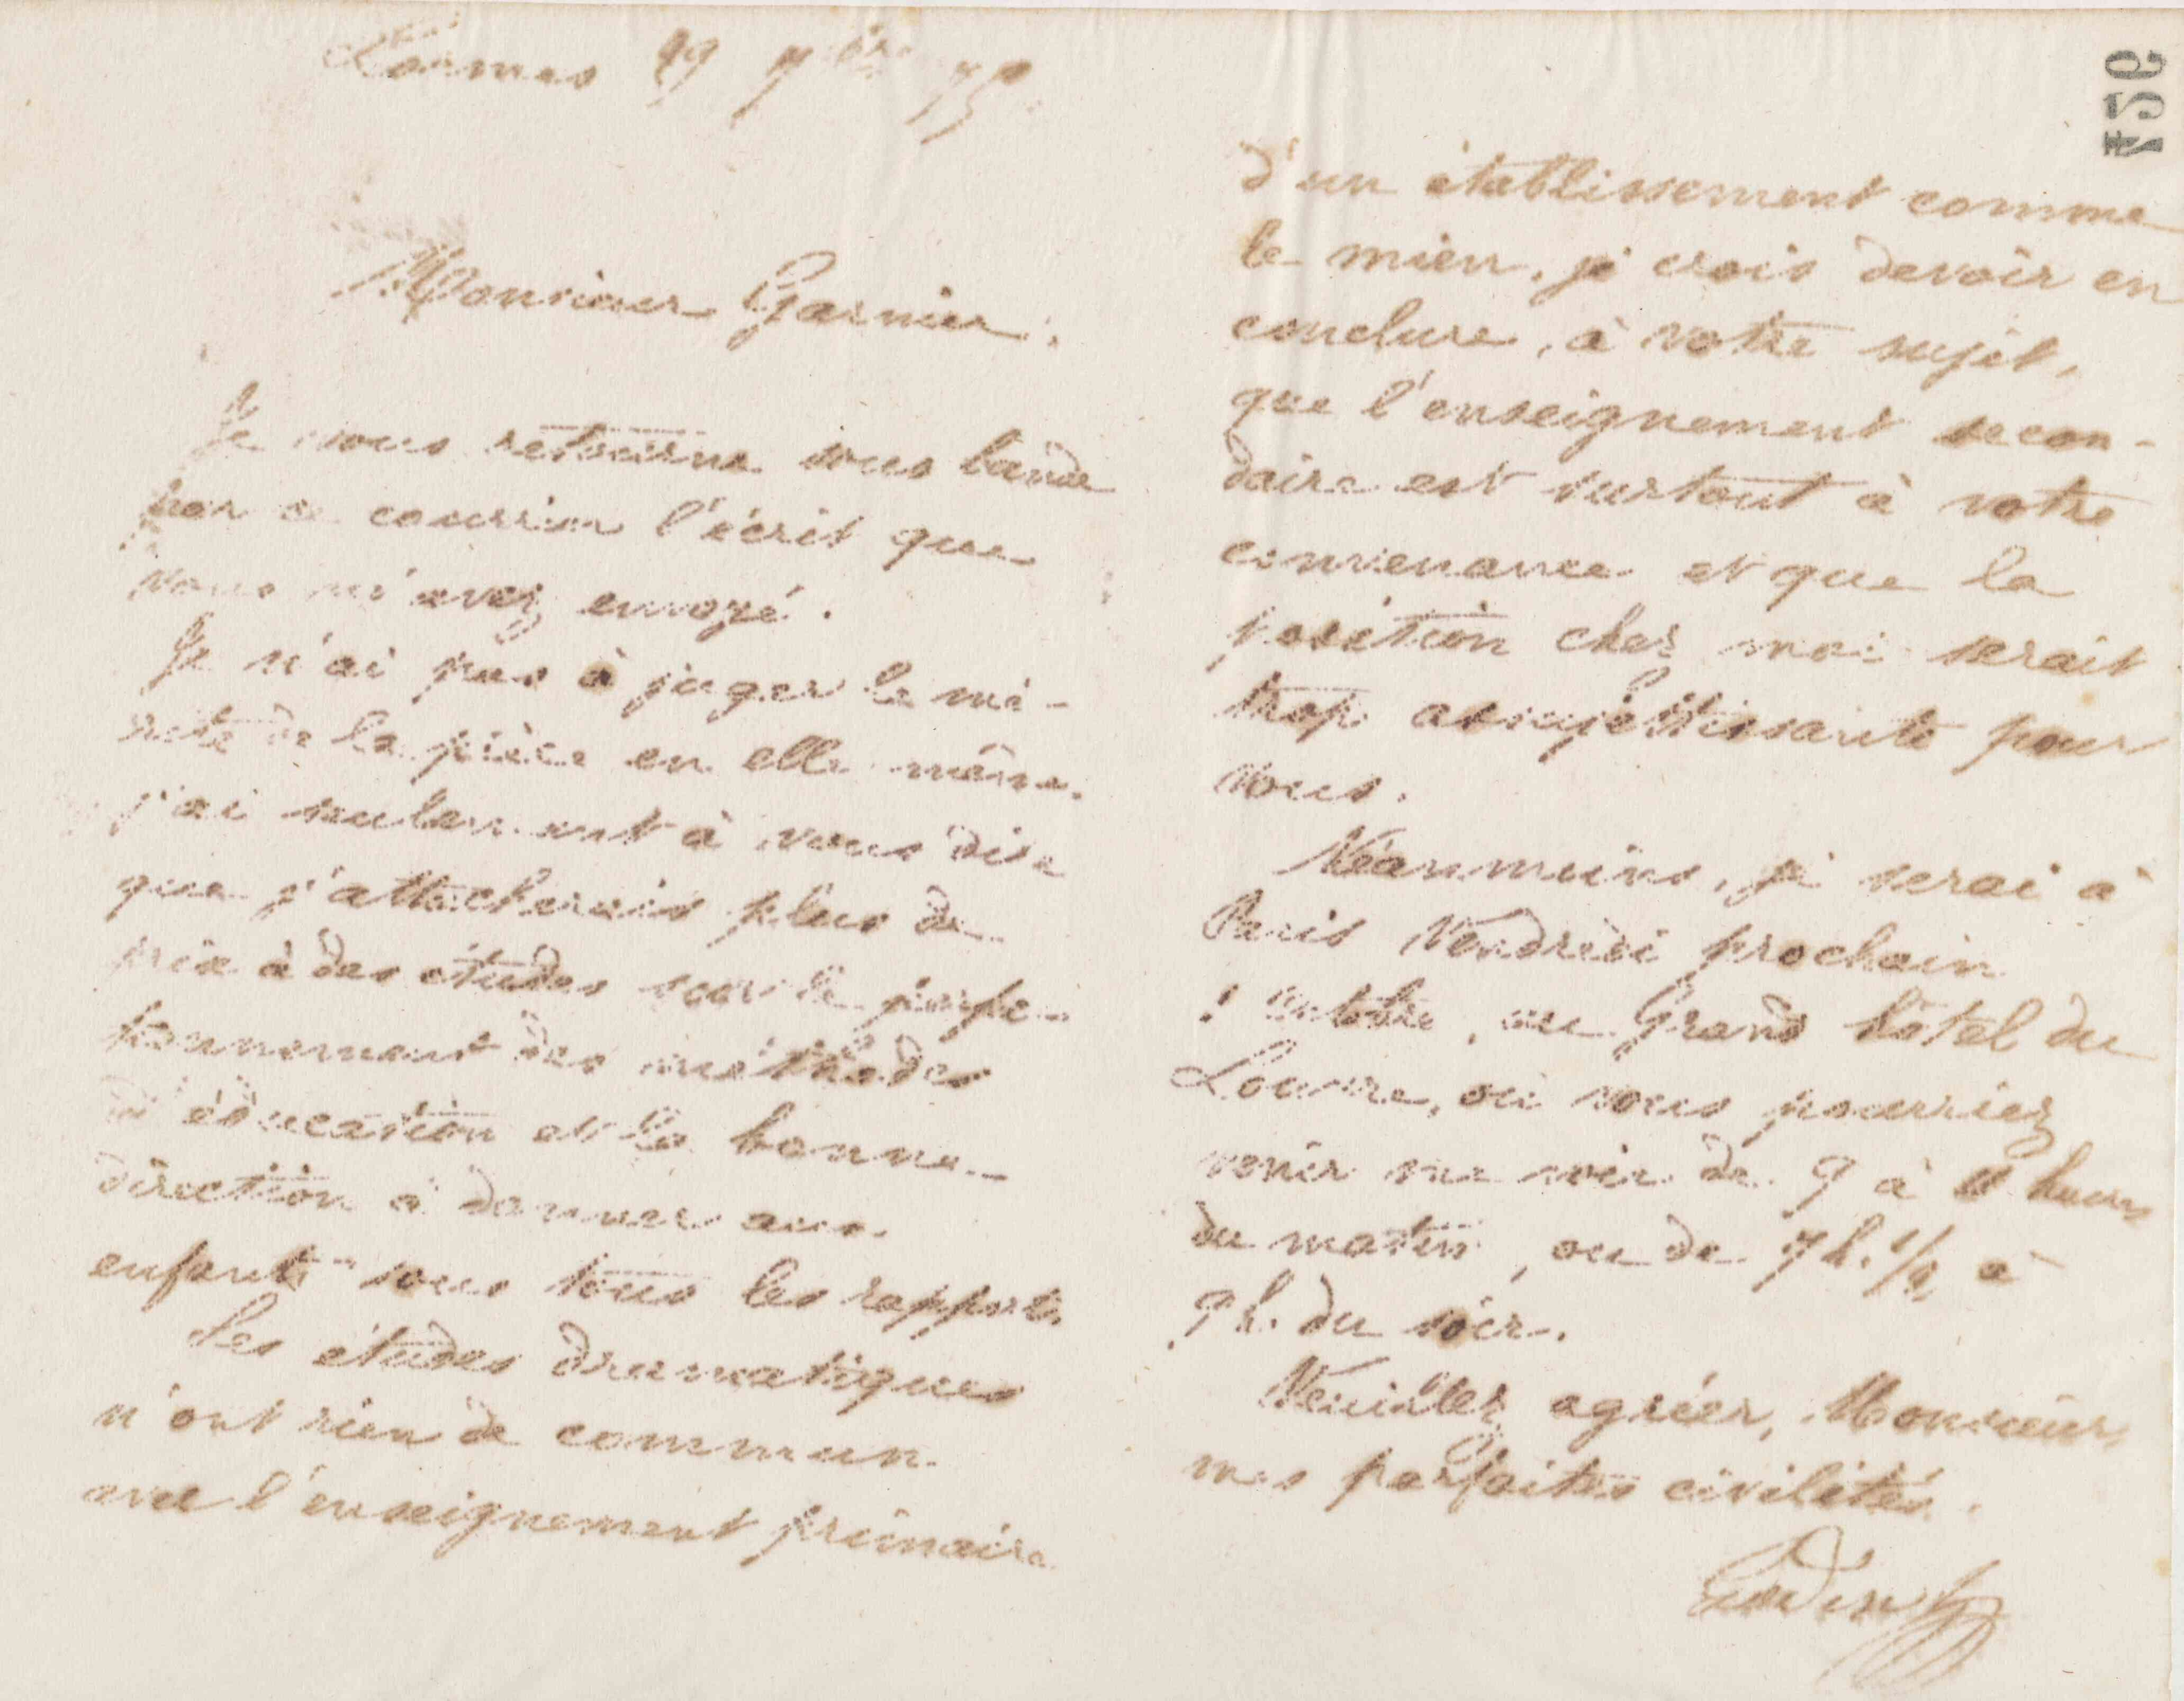 29 7bre 75
Monsieur Garnier,
Je vous retourne sous bande
par ce courrier l'écrit que
vous m'avez envoyé.
Je n'ai pas à juger le mé-
rite de la pièce en elle même.
j'ai seulement à vous dire
que j'attacherais plus de
prix à des études sur le perfec-
tionnement des méthodes
d'éducation et la bonne
direction à donner aux
enfants sous tous les rapports.
Les études dramatiques
n'ont rien de commun
avec l'enseignement primaire
d'un établissement comme
le mien, je crois devoir en
conclure, à votre sujet,
que l'enseignement secon-
daire est surtout à votre
convenance et que la
position chez moi serait
trop assujettissante pour
vous.
Néanmoins, je serai à
Paris Vendredi prochain
1 octobre, au Grand hôtel du
Louvre, où vous pourriez
venir me voir de 9 à heures
du matin, ou de 7 h. 1/2 à
9 h. du soir.
Veuillez agréer, Monsieur,
mes parfaites civilités.
Godin